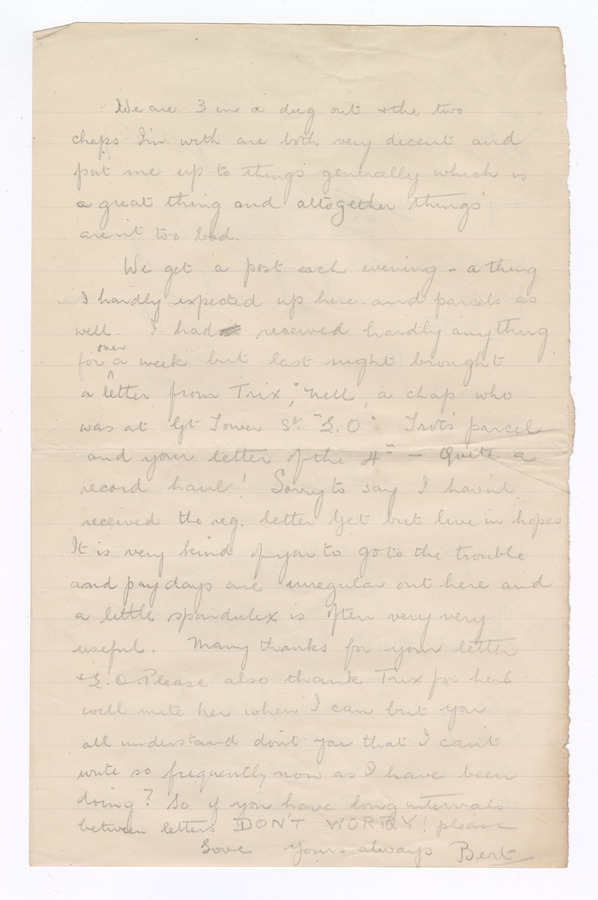 We are 3 in a dug out & the two
chaps I'm with are both very decent and
put me up to things generally which is
a great thing and altogether things
aren't too bad.
We get a post each evening - a thing
I hardly expected up here. and parcels as
well. I had received hardly anything
for over a week but last night brought
a letter from Trix, Nell, a chap who
was at Gt Tower St. "L.O". Trot's parcel
and your letter of the 4th — Quite a
record haul! Sorry to say I haven't
received the reg. letter yet but live in hopes
It is very kind of you to go to the trouble
and pay days are irregular out here and
a little spondulix is often very very
useful. Many thanks for your letter
& L.O. Please also thank Trix for hers
will write her when I can but you
all understand don't you that I can't
write so frequently now as I have been
doing? So if you have long intervals
between letters DON'T WORRY! please
Love Yours always Bert